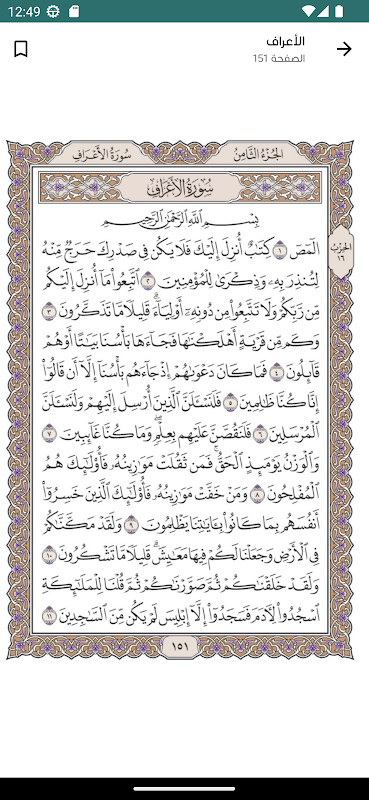 12:49
الأعراف
الصفحة 151
الجُزْءُ الثَّامِنُ
سُورَةُ الأَعْرَافِ
سُورَةُ الأَعْرَافِ
الحِزْبُ
١٦
بِسْمِ اللَّهِ الرَّحْمَٰنِ الرَّحِيمِ
الٓمٓصٓ ١ كِتَٰبٌ أُنزِلَ إِلَيْكَ فَلَا يَكُن فِي صَدْرِكَ حَرَجٌ مِّنْهُ
لِتُنذِرَ بِهِۦ وَذِكْرَىٰ لِلْمُؤْمِنِينَ ٢ ٱتَّبِعُوا۟ مَآ أُنزِلَ إِلَيْكُم
مِّن رَّبِّكُمْ وَلَا تَتَّبِعُوا۟ مِن دُونِهِۦٓ أَوْلِيَآءَۗ قَلِيلًا مَّا تَذَكَّرُونَ ٣
وَكَم مِّن قَرْيَةٍ أَهْلَكْنَٰهَا فَجَآءَهَا بَأْسُنَا بَيَٰتًا أَوْ هُمْ
قَآئِلُونَ ٤ فَمَا كَانَ دَعْوَىٰهُمْ إِذْ جَآءَهُم بَأْسُنَآ إِلَّآ أَن قَالُوٓا۟
إِنَّا كُنَّا ظَٰلِمِينَ ٥ فَلَنَسْـَٔلَنَّ ٱلَّذِينَ أُرْسِلَ إِلَيْهِمْ وَلَنَسْـَٔلَنَّ
ٱلْمُرْسَلِينَ ٦ فَلَنَقُصَّنَّ عَلَيْهِم بِعِلْمٍۖ وَمَا كُنَّا غَآئِبِينَ ٧
وَٱلْوَزْنُ يَوْمَئِذٍ ٱلْحَقُّۚ فَمَن ثَقُلَتْ مَوَٰزِينُهُۥ فَأُو۟لَٰٓئِكَ هُمُ
ٱلْمُفْلِحُونَ ٨ وَمَنْ خَفَّتْ مَوَٰزِينُهُۥ فَأُو۟لَٰٓئِكَ ٱلَّذِينَ خَسِرُوٓا۟
أَنفُسَهُم بِمَا كَانُوا۟ بِـَٔايَٰتِنَا يَظْلِمُونَ ٩ وَلَقَدْ مَكَّنَّٰكُمْ
فِي ٱلْأَرْضِ وَجَعَلْنَا لَكُمْ فِيهَا مَعَٰيِشَۗ قَلِيلًا مَّا تَشْكُرُونَ ١٠
وَلَقَدْ خَلَقْنَٰكُمْ ثُمَّ صَوَّرْنَٰكُمْ ثُمَّ قُلْنَا لِلْمَلَٰٓئِكَةِ
ٱسْجُدُوا۟ لِـَٔادَمَ فَسَجَدُوٓا۟ إِلَّآ إِبْلِيسَ لَمْ يَكُن مِّنَ ٱلسَّٰجِدِينَ ١١
١٥١